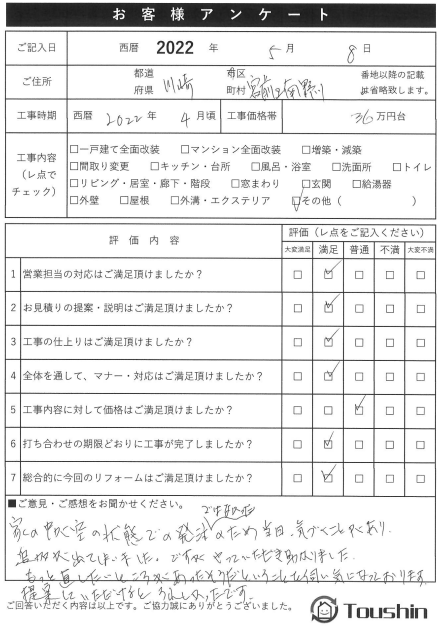 お客様アンケート
ご記入日 西暦 2022 年 5 月 8 日
ご住所 都道府県 川崎 市区町村 宮前区南野川 番地以降の記載は省略致します。
工事時期 西暦 2022 年 4 月頃 工事価格帯 36 万円台
工事内容（レ点でチェック）
□一戸建て全面改装 □マンション全面改装 □増築・減築
□間取り変更 □キッチン・台所 □風呂・浴室 □洗面所 □トイレ
□リビング・居室・廊下・階段 □窓まわり □玄関 □給湯器
□外壁 □屋根 □外溝・エクステリア ☑その他（ ）
評価内容 評価（レ点をご記入ください）
大変満足 満足 普通 不満 大変不満
1 営業担当の対応はご満足頂けましたか？ □ ☑ □ □ □
2 お見積りの提案・説明はご満足頂けましたか？ □ ☑ □ □ □
3 工事の仕上りはご満足頂けましたか？ □ ☑ □ □ □
4 全体を通して、マナー・対応はご満足頂けましたか？ □ ☑ □ □ □
5 工事内容に対して価格はご満足頂けましたか？ □ □ ☑ □ □
6 打ち合わせの期限どおりに工事が完了しましたか？ □ ☑ □ □ □
7 総合的に今回のリフォームはご満足頂けましたか？ □ ☑ □ □ □
■ご意見・ご感想をお聞かせください。
ではなかった
家の中が空の状態での発注のため当日、気づくことがあり、
追加が出てしまいました。ですがやっていただき助かりました。
もっと直したいところがあったそうだということを伺い気になっております。
提案していただけるとうれしかったです。
ご回答いただく内容は以上です。ご協力誠にありがとうございました。
Toushin